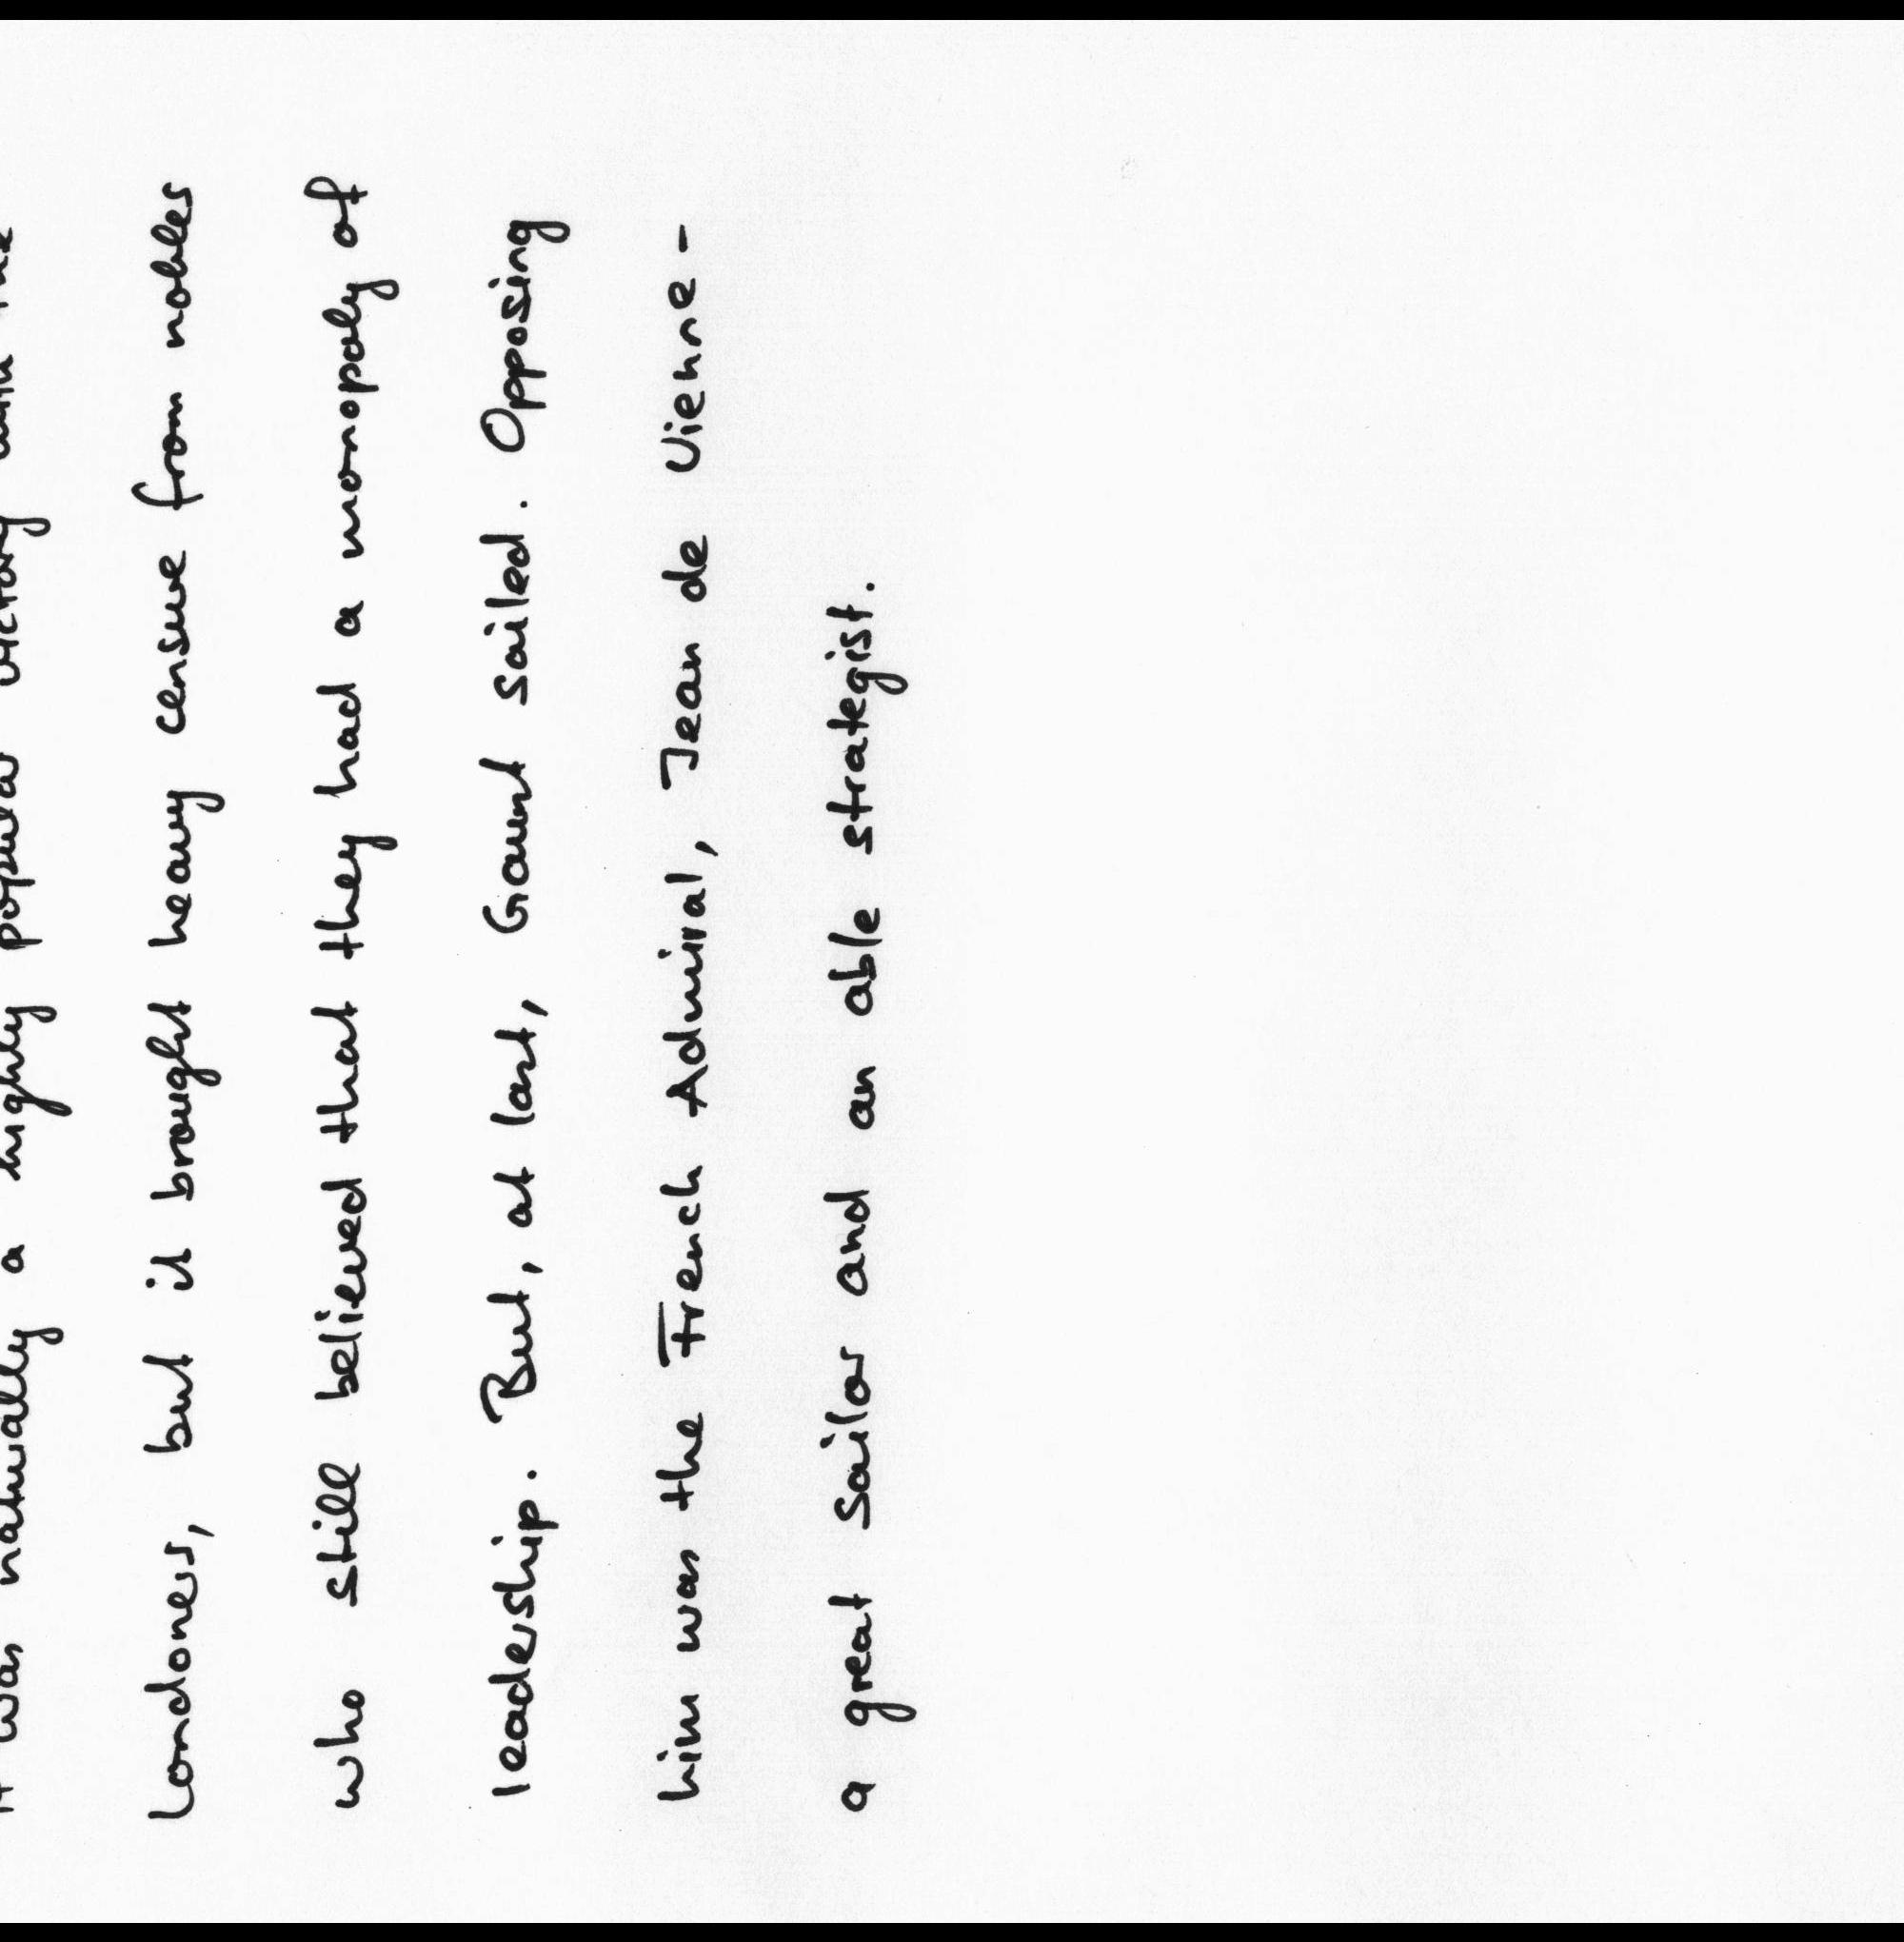 It was naturally a highly popular victory with the
Londoners, but it brought heavy censure from nobles
who still believed that they had a monopoly of
leadership. But, at last, Gaunt sailed. Opposing
him was the French Admiral, Jean de Vienne -
a great sailor and an able strategist.